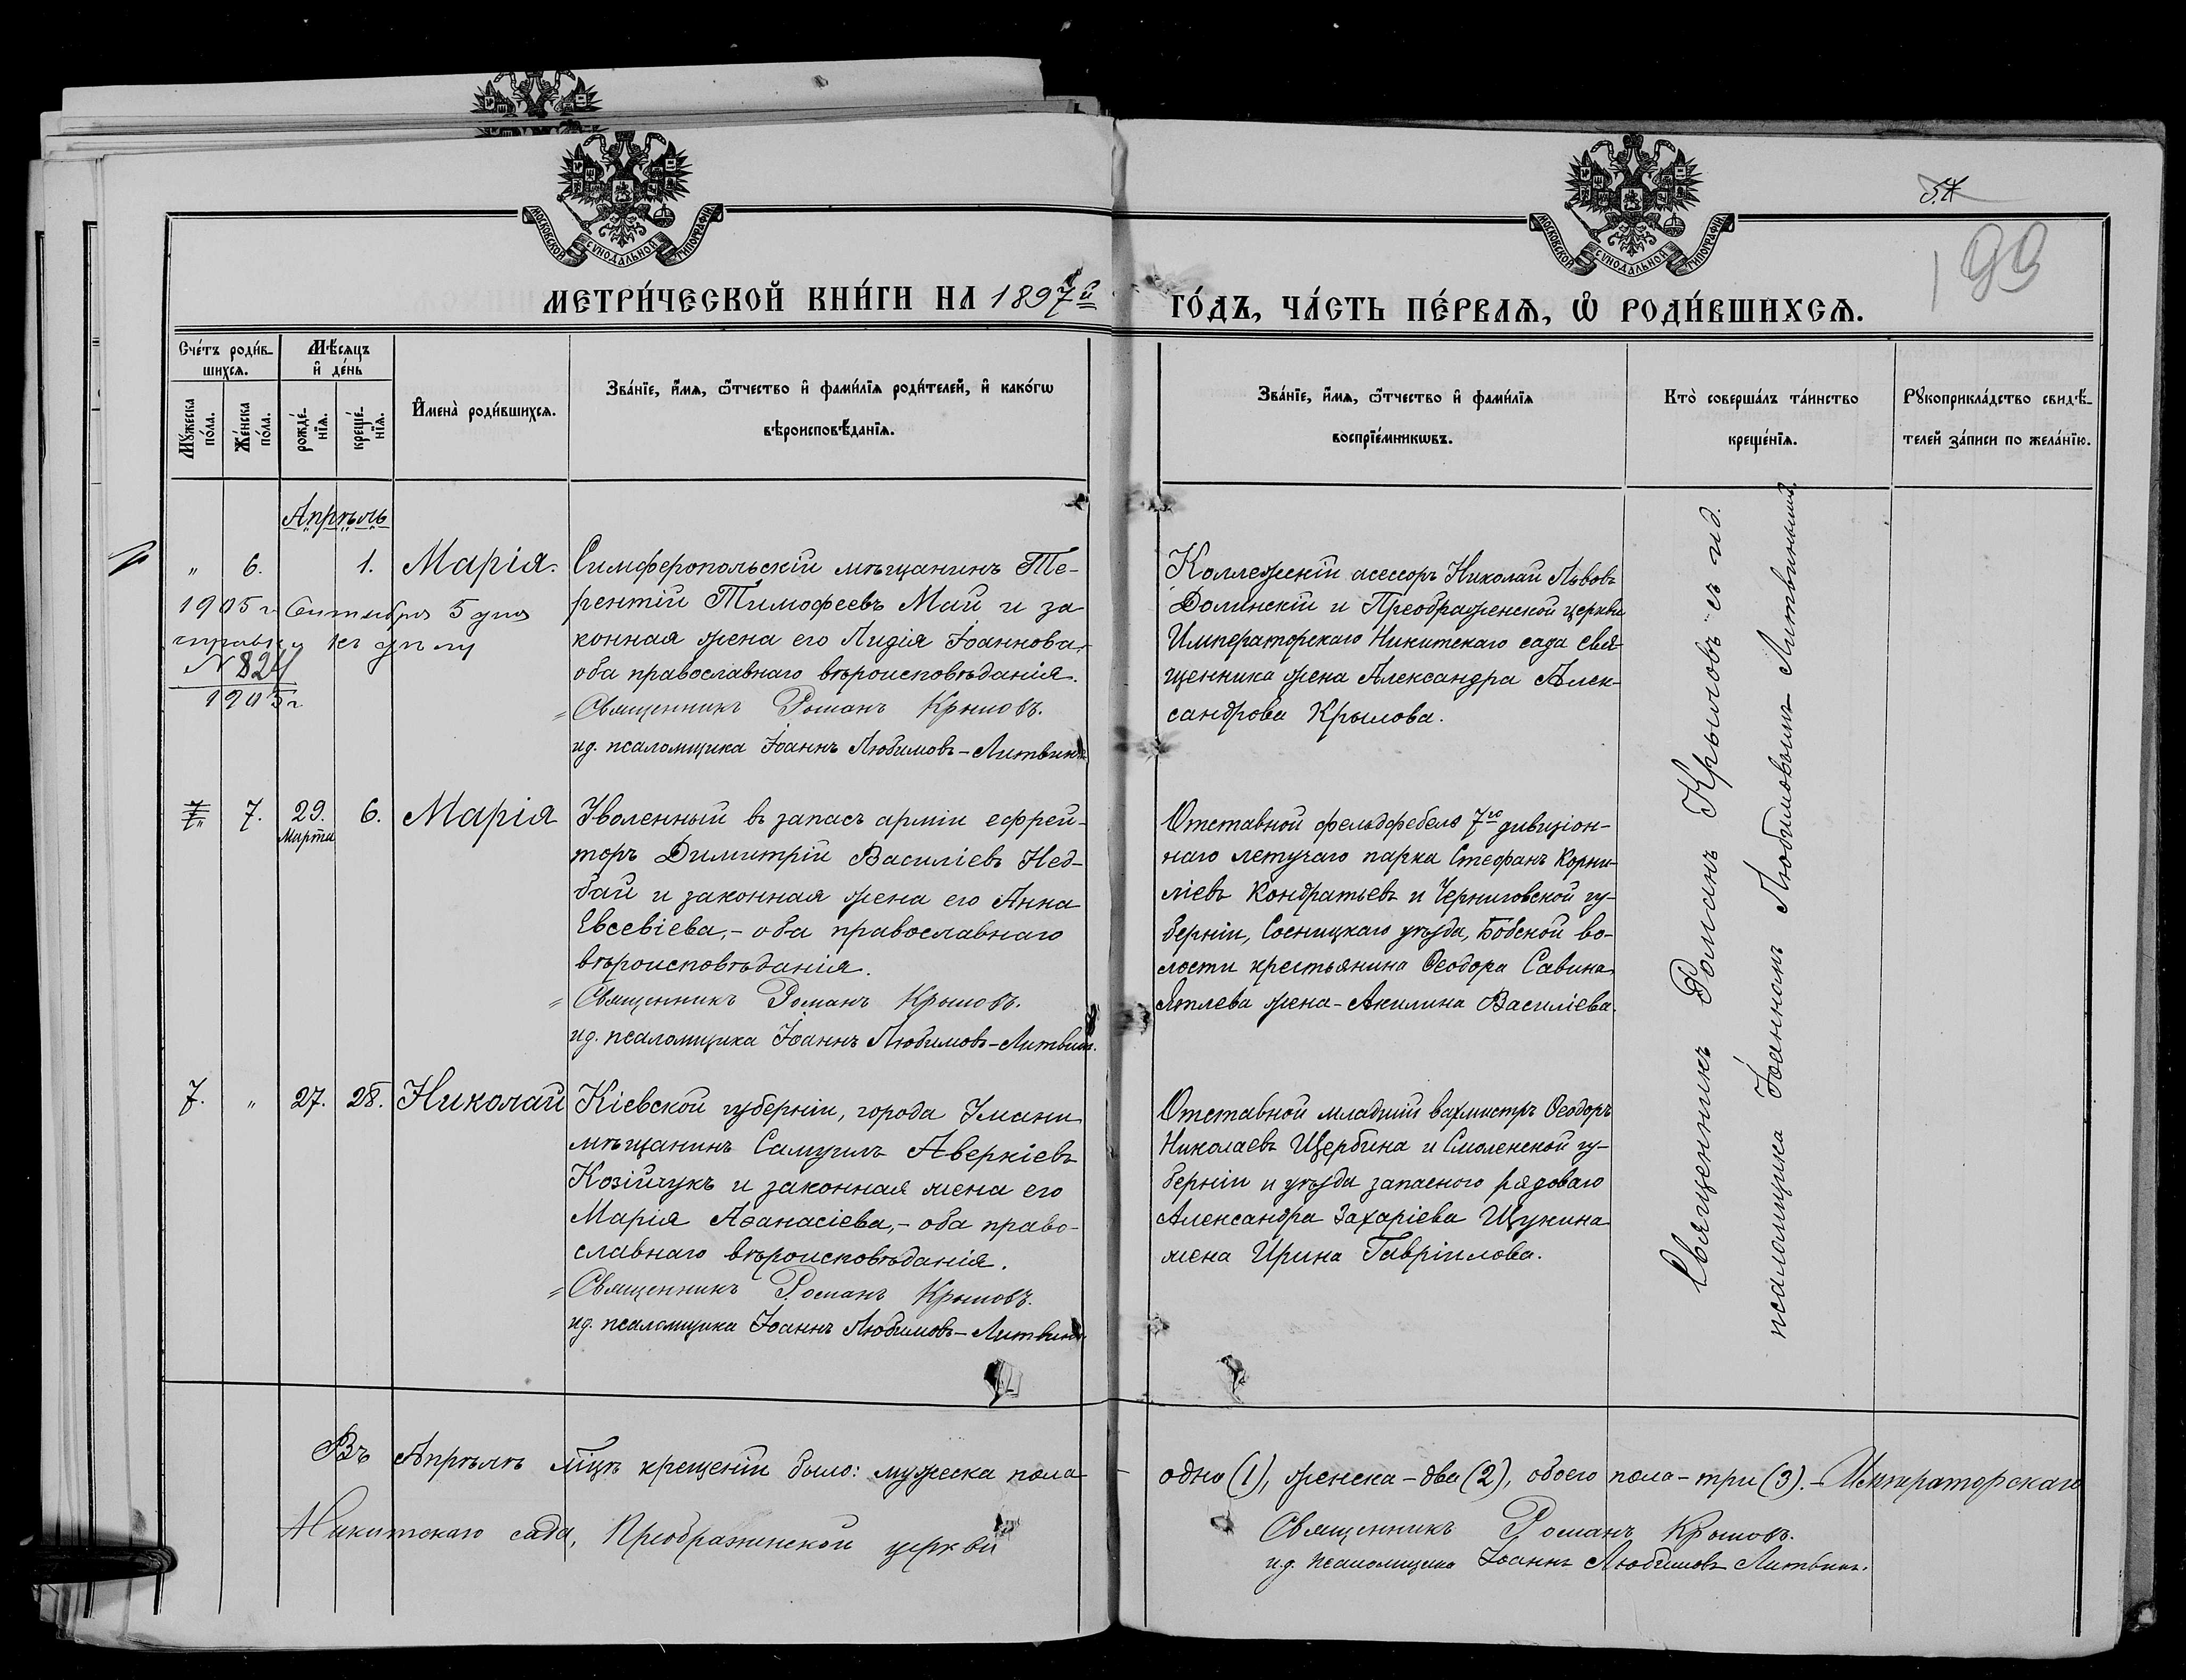 МОСКОВСКОЙ СѴНОДАЛЬНОЙ ТИПОГРАФІИ
МОСКОВСКОЙ СѴНОДАЛЬНОЙ ТИПОГРАФІИ
199
МЕТРИ́ЧЕСКОЙ КНИ́ГИ НА 1897й
ГО́ДЪ, ЧА́СТЬ ПЕ́РВАѦ, Ѡ҆ РОДИ́ВШИХСѦ.
Сче́тъ роди́в-
шихсѧ.
Мꙋ́жеска
по́ла.
Же́нска
по́ла.
Мѣ́сяцъ
и҆ де́нь
рожде́-
нїѧ.
креще́-
нїѧ.
И҆мена̀ роди́вшихсѧ.
Зва́нїе, и҆́мѧ, ѻ҆́тчество и҆ фами́лїѧ роди́телей, и҆ како́гѡ
вѣроисповѣ́данїѧ.
Зва́нїе, и҆́мѧ, ѻ҆́тчество и҆ фами́лїѧ
воспрїе́мникѡвъ.
Кто̀ соверша́лъ та́инство
креще́нїѧ.
Рꙋкоприкла́дство свидѣ́-
телей за́писи по жела́нїю.
Апрѣль
" 6. 1. Марія.
Симферопольскій мѣщанинъ Те-
рентій Тимофеевъ Май и за
конная жена его Лидія Іоаннова,
оба православнаго вѣроисповѣданія.
Священникъ Романъ Крыловъ.
ид. псаломщика Іоаннъ Любимовъ-Литвинъ
1905 г. Сентября 5 дня
справка къ дѣлу
N 824
1905 г.
Коллежскій асессоръ Николай Львовъ
Долинскій и Преображенской церкви
Императорскаго Никитскаго сада свя-
щенника жена Александра Алек-
сандрова Крылова.
7. 29. Марта 6. Марія
Уволенный въ запасъ арміи ефрей-
торъ Димитрій Василіевъ Нед-
бай и законная жена его Анна
Евсевіева,- оба православнаго
вѣроисповѣданія.
Священникъ Романъ Крыловъ.
ид. псаломщика Іоаннъ Любимовъ-Литвинъ.
Отставной фельдфебель 7го дивизіон-
наго летучаго парка Стефанъ Корни-
ліевъ Кондратьевъ и Черниговской гу-
берніи, Сосницкаго уѣзда, Бобской во-
лости крестьянина Ѳеодора Савина
Ятлева жена-Акилина Василіева.
7. " 27. 28. Николай
Кіевской губерніи, города Умани
мѣщанинъ Самуилъ Аверкіевъ
Козійчукъ и законная жена его
Марія Аѳанасіева,- оба право-
славнаго вѣроисповѣданія.
Священникъ Романъ Крыловъ.
ид. псаломщика Іоаннъ Любимовъ-Литвинъ
Отставной младшій вахмистръ Ѳеодоръ
Николаевъ Щербина и Смоленской гу-
берніи и уѣзда запасного рядоваго
Александра Захаріева Щукина
жена Ирина Гавріилова.
Священникъ Романъ Крыловъ съ ид.
псаломщика Іоанномъ Любимовымъ-Литвиномъ.
Въ Апрѣлѣ мцѣ крещеній было: мужеска пола-
одно (1), женска-два (2), обоего пола-три (3).-Императорскаго
Никитскаго сада, Преображенской церкви
Священникъ Романъ Крыловъ.
ид. псаломщика Іоаннъ Любимовъ Литвинъ.